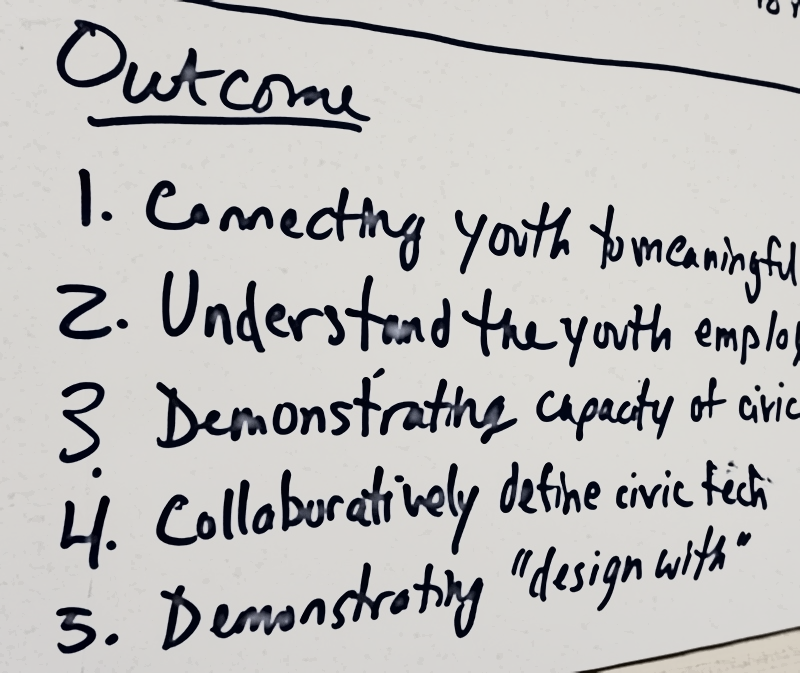 Outcome
1. Connecting youth to meaningful
2. Understand the youth emplo
3. Demonstrating capacity of civic
4. Collaboratively define civic tech
5. Demonstrating "design with"